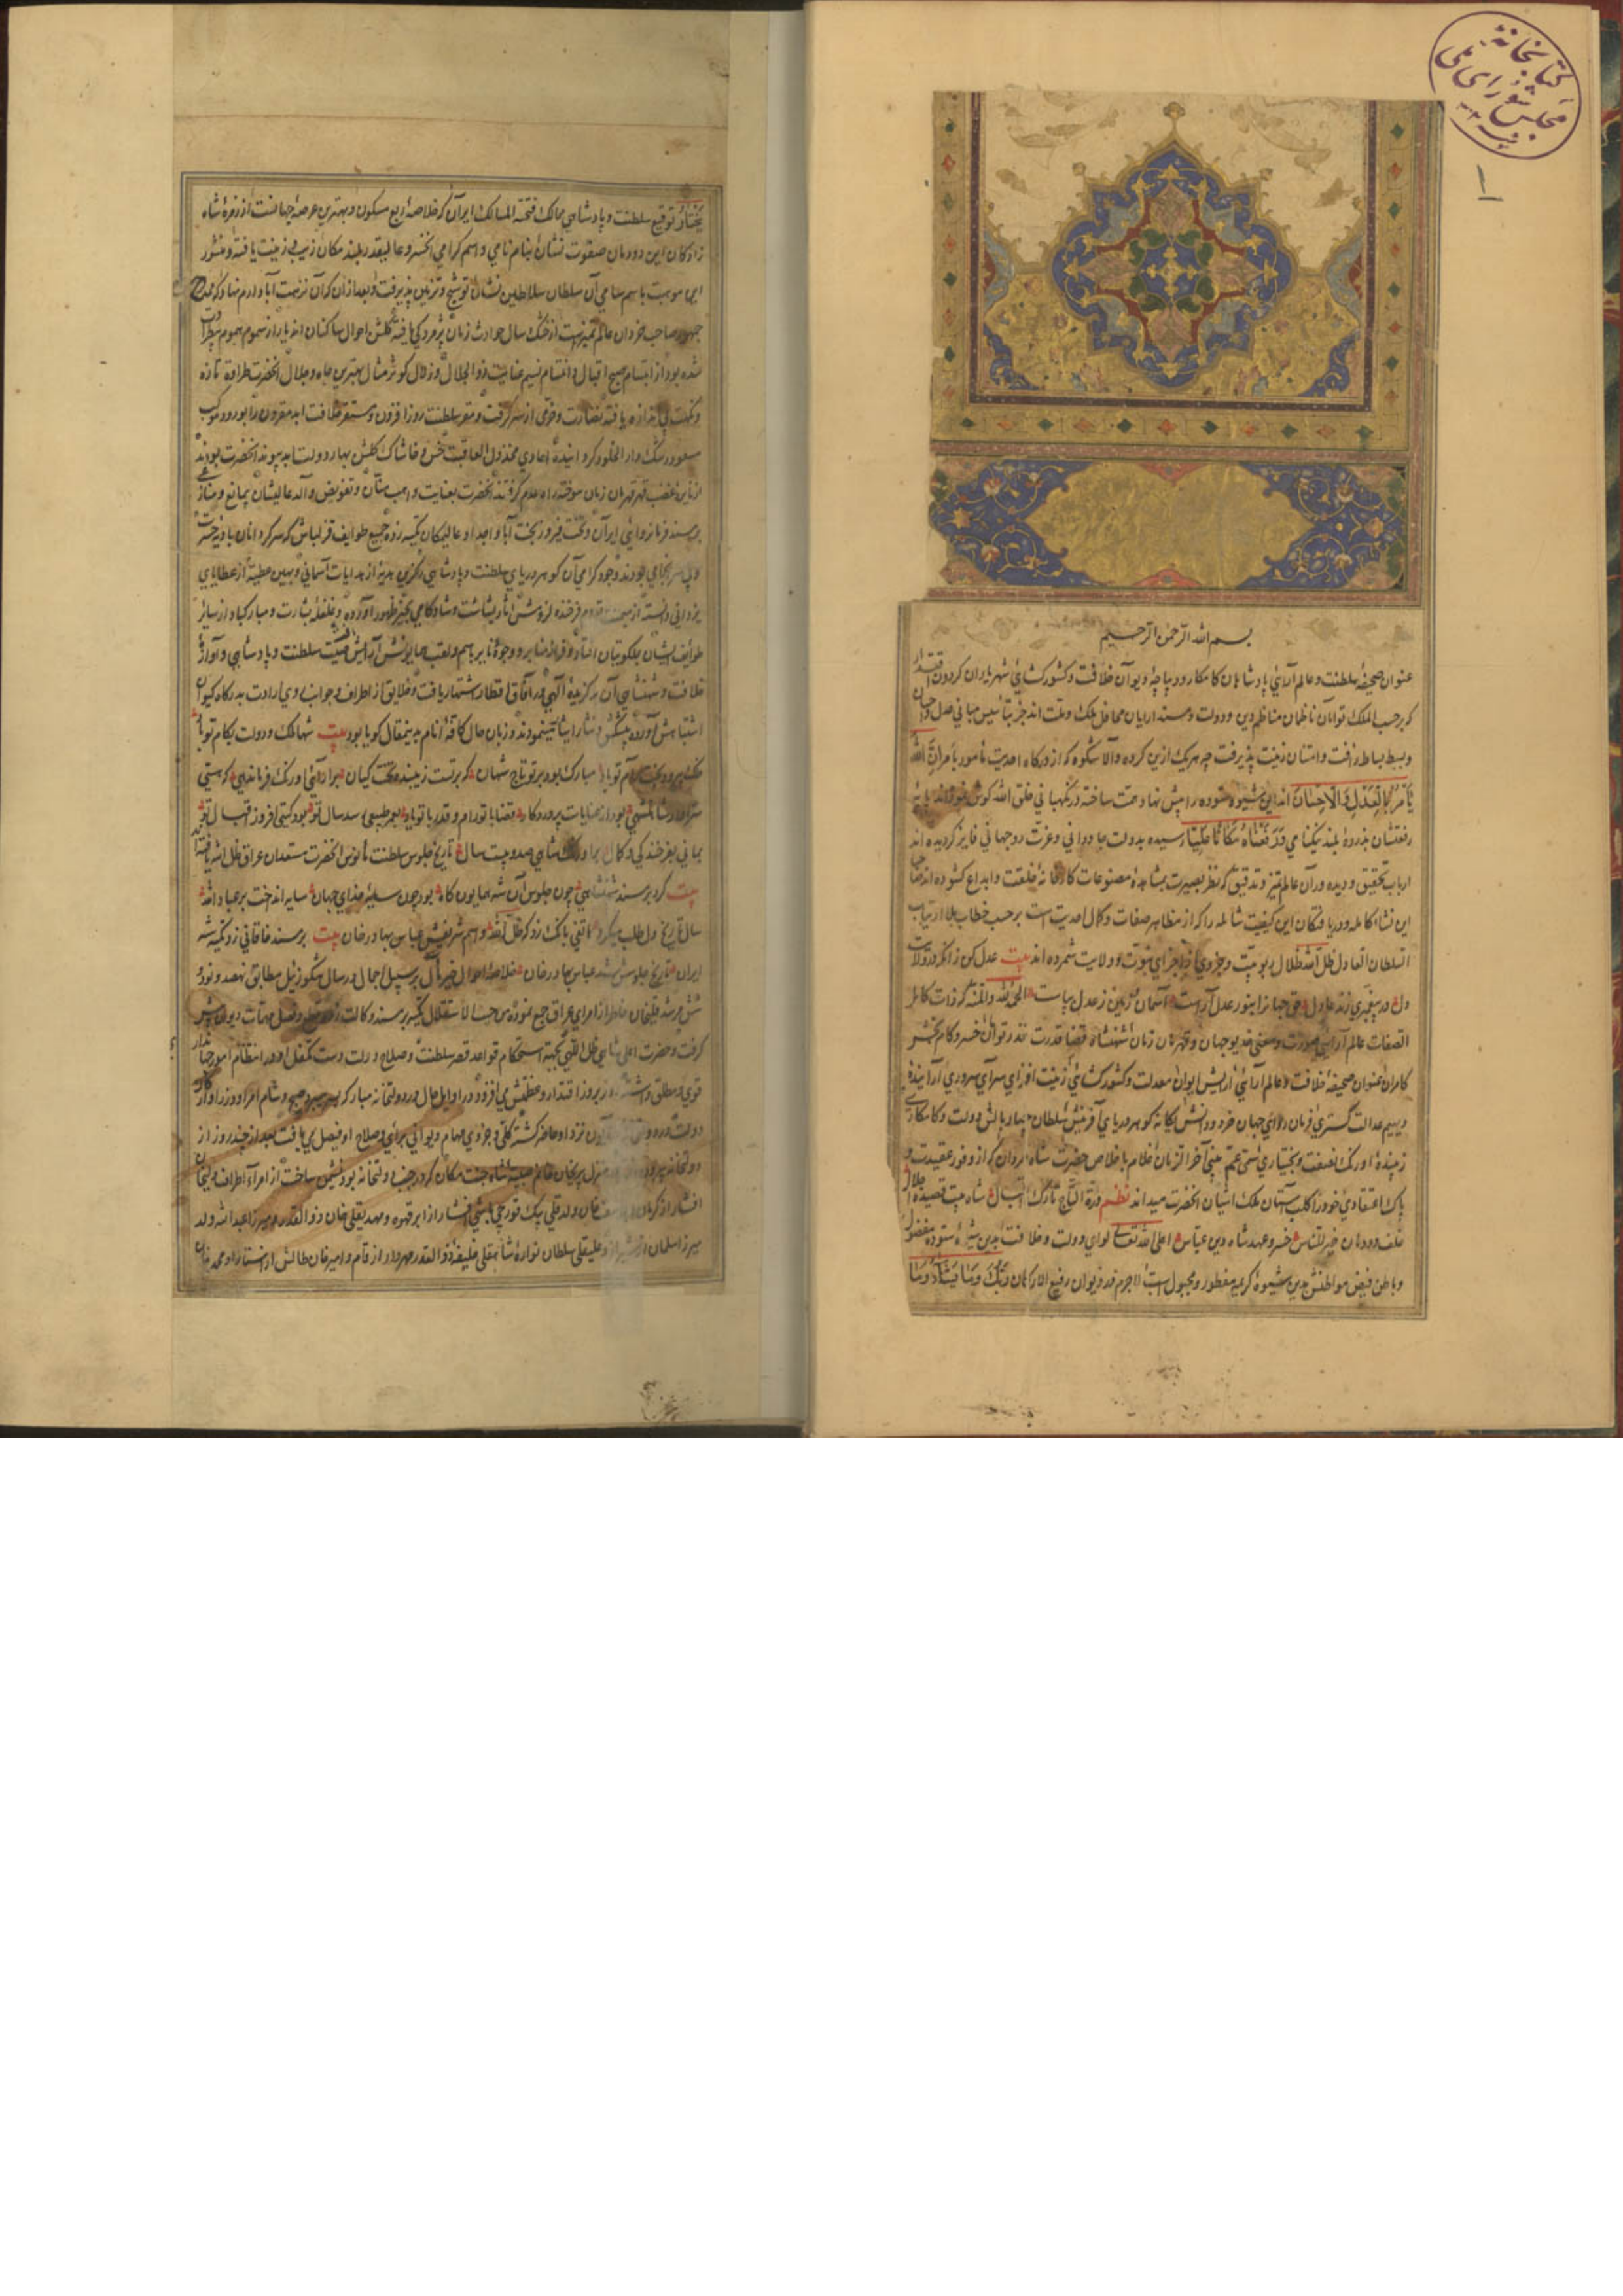 کتابخانهٔ
مجلس شورای ملی
۱
بسم الله الرحمن الرحیم
عنوان صحیفهٔ سلطنت و عالم آرائی پادشاهان کامکار و دیباچهٔ دیوان خلافت و کشورکشائی شهریاران کردون اقتدار
که برحسب الملک توأمان ناظمان مناظم دین و دولت و مسندارایان محافل ملک و ملت اند جز بتأسیس مبانی عدل و احسان
و بسط بساط رأفت و امتنان زینت پذیرفت چه هریک ازین کروه والا شکوه که از درکاه احدیت مأمور بامر ان الله
یأمر بالعدل و الاحسان اند این شیوه ستوده را پیش نهاد همت ساخته در نکهبانی خلق الله کوشش نموده اند پایهٔ
رفعتشان بذروهٔ بلند نیکنامی و رفعناه مکانا علیا رسیده بدولت جاودانی و عزت دوجهانی فایز کردیده اند
ارباب تحقیق و دیده وران عالم تمیز و تدقیق که نظر بصیرت بمشاهدهٔ مصنوعات کارخانهٔ خلقت و ابداع کشوده اند
این نشاٴ کامله و دریافتکان این کیفیت شامله را که از مظاهر صفات و کمال احدیت است برحسب خطاب بلا ارتیاب
السلطان العادل ظل الله ظلال ربوبیت و جزوی از اجزای نبوت و ولایت شمرده اند بیت عدل کن زانکه در ولایت
دل در پیغمبری زند عادل حق جهانرا بنور عدل آراست آسمان و زمین ز عدل بپاست الحمد لله و المنه که ذات کامل
الصفات عالم آرای صورت و معنی خدیو جهان و قهرمان زمان شهنشاه قضا قدرت قدر توان خسرو کام بخش
کامران عنوان صحیفهٔ خلافت و عالم آرائی آرایش ایوان معدلت و کشورکشائی زینت افزای سرای سروری آرایندهٔ
دیهیم عدالت کستری فرمان روای جهان خرد و دانش یکانه کوهر دریای آفرینش سلطان چهاربالش دولت و کامکاری
زیبندهٔ اورنک نصفت و بختیاری سمی عم نبی آخر الزمان غلام باخلاص حضرت شاه مردان که از وفور عقیدت و
پاک اعتقادی خود را کلب آستان ملک آشیان آنحضرت میداند نظم درة التاج تارک اقبال شاه بیت قصیدهٔ اجلال
خلف دودمان خیر الناس خسرو عهد شاه دین عباس اعلی الله تعالی لوای دولت و خلافت بدین شیوهٔ ستوده مفطور
و باطن فیض مواطنش بدین شیوهٔ کریمه مفطور و مجبول است لاجرم در دیوان رفیع الارکان ربک و ما یشاء و
یختار توقیع سلطنت و پادشاهی ممالک فسحة المسالک ایران که خلاصهٔ ربع مسکون و بهترین عرصهٔ جهانست از زمرهٔ شاه
زادکان این دودمان صفوت نشان بنام نامی و اسم کرامی آنخسرو عالیقدر بلند مکان زیب و زینت یافته و منشور
این موهبت باسم سامی آن سلطان سلاطین نشان توشیح و تزیین پذیرفت و بعد از آن که آن نزهت آباد ارم نهاد که
جمهور صاحب خردان عالم تمیز است از خشک سال حوادث زمان پژمردکی یافته کلشن احوال ساکنان اندیار از سموم هموم
شده بود از ابتسام صبح اقبال و اغتنام نسیم عنایت ذو الجلال و زلال کوثر مثال بهترین جاه و جلال آنحضرت طراوت تازه
و نکهت بی اندازه یافته نضارت و خرمی از سر کرفت و مقر سلطنت روز افزون و مستقر خلافت ابد مقرون را بورود موکب
مسعود رشک دار الخلود کردانیده اعادی مخذول العاقبت خس و خاشاک کلشن بهار دولت ابد پیوند آنحضرت بودند
از نایرهٔ غضب قهر قهرمان زمان سوخته راه عدم کرفتند آنحضرت بعنایت واهب منان و تفویض والد عالیشان بی مانع و منازعی
بر مسند فرمانروائی ایران و تخت فیروز بخت آبا و اجداد عالیمکان تکیه زده جمیع طوایف قزلباش که سرکردانان بادیهٔ حیرت
و بی سرانجامی بودند وجود کرامی آن کوهر دریای سلطنت و پادشاهی را کزین هدیهٔ از هدایات آسمانی و بهین عطیهٔ از عطایای
یزدانی دانسته از قدوم فرخنده لزومش آثار بشاشت و شادکامی بحیز ظهور آوردند و غلغلهٔ بشارت و مبارکباد از سایر
طوایف انسان بملکوتیان افتاد و فراز منابر و وجوه دنانیر باسم و لقب همایونش آرایش یافت صیت سلطنت و پادشاهی و آوازهٔ
خلافت و شهنشاهی آن برکزیدهٔ الهی در آفاق و اقطار اشتهار یافت و خلایق از اطراف و جوانب روی ارادت بدرکاه کیوان
اشتباهش آورده پیشکش و نثار ایثار مینمودند و زبان حال کافهٔ انام بدینمقال کویا بود بیت شها ملک و دولت بکام تو باد
مبارک بود بر تو تاج شهان که بر تست زیبنده تخت کیان
سزاوار شاهنشهی بود از عنایات پروردکار قضا با تو رام و قدر با تو یار بعمر طبیعی رسد سال تو بود کیتی افروز اقبال تو
بمانی بفرخندکی و کمال شاهی صد و بیست سال تاریخ جلوس سلطنت مأنوس آنحضرت مستعدان عراق ظل الله یافته اند
بیت کرد بر مسند شهنشاهی چون جلوس آن شه همایون کاه بود چون سایهٔ خدای جهان سایه انداخت بر عباد الله
سال تاریخ دل طلب میکرد هاتفی بانک زد که ظل الله و اسم شریفش عباس بهادر خان بیت بر مسند خاقانی زد تکیه شه
ایران تاریخ جلوسش شد عباس بهادر خان خلاصهٔ احوال خیر مآل بر سبیل اجمال در سال تنکوز ئیل مطابق نهصد و نود و
شش مرشد قلیخان خاطر از امرای عراق جمع نموده من حیث الاستقلال تکیه بر مسند وکالت زد و قبض و فصل مهمات دیوان پیش
کرفت و حضرت اعلی شاهی ظل اللهی بجهة استحکام قواعد قصر سلطنت و صلاح دولت دست تکفل او در انتظام امور جهانداری
قوی و مطلق داشته روز بروز اقتدار و عظمتش می افزود در اوایل حال در دولتخانه مبارکه بسر میبرد و صبح و شام امرا و وزرا و ارکان
دولت نزد او حاضر کشته کلی و جزوی مهام دیوانی برأی و صلاح او فیصل می یافت بعد از چند روز از
دولتخانه منزل پریخان خانم صبیهٔ شاه جنت مکان که در جنب دولتخانه بود نشیمن ساخت از امراء اطراف ولیخان
افشار از کرمان خان ولد قلی بیک قورچی باشی افشار از ابرقوه و مهدیقلی خان ذو القدر و میرزا عبد الله ولد
میرزا سلمان از شیراز و علیقلی سلطان نوادهٔ شاهقلی خلیفهٔ ذو القدر مهردار از قم و امیر خان طالش از آستارا و محمد خان